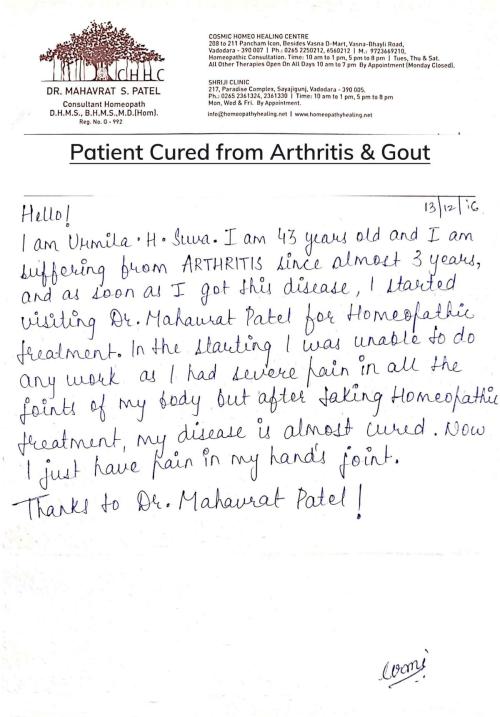 CHHC
DR. MAHAVRAT S. PATEL
Consultant Homeopath
D.H.M.S., B.H.M.S.,M.D.(Hom).
Reg. No. G - 992
COSMIC HOMEO HEALING CENTRE
208 to 211 Pancham Icon, Besides Vasna D-Mart, Vasna-Bhayli Road,
Vadodara - 390 007 | Ph.: 0265 2250212, 6560212 | M.: 9723669210,
Homeopathic Consultation. Time: 10 am to 1 pm, 5 pm to 8 pm | Tues, Thu & Sat.
All Other Therapies Open On All Days 10 am to 7 pm By Appointment (Monday Closed).
SHRIJI CLINIC
217, Paradise Complex, Sayajigunj, Vadodara - 390 005.
Ph.: 0265 2361324, 2361330 | Time: 10 am to 1 pm, 5 pm to 8 pm
Mon, Wed & Fri. By Appointment.
info@homeopathyhealing.net | www.homeopathyhealing.net
Patient Cured from Arthritis & Gout
13/12/16
Hello!
I am Urmila . H . Suva. I am 43 years old and I am
suffering from ARTHRITIS since almost 3 years,
and as soon as I got this disease, I started
visiting Dr. Mahavrat Patel for Homeopathic
treatment. In the starting I was unable to do
any work as I had severe pain in all the
joints of my body but after taking Homeopathic
treatment, my disease is almost cured. Now
I just have pain in my hand's joint.
Thanks to Dr. Mahavrat Patel!